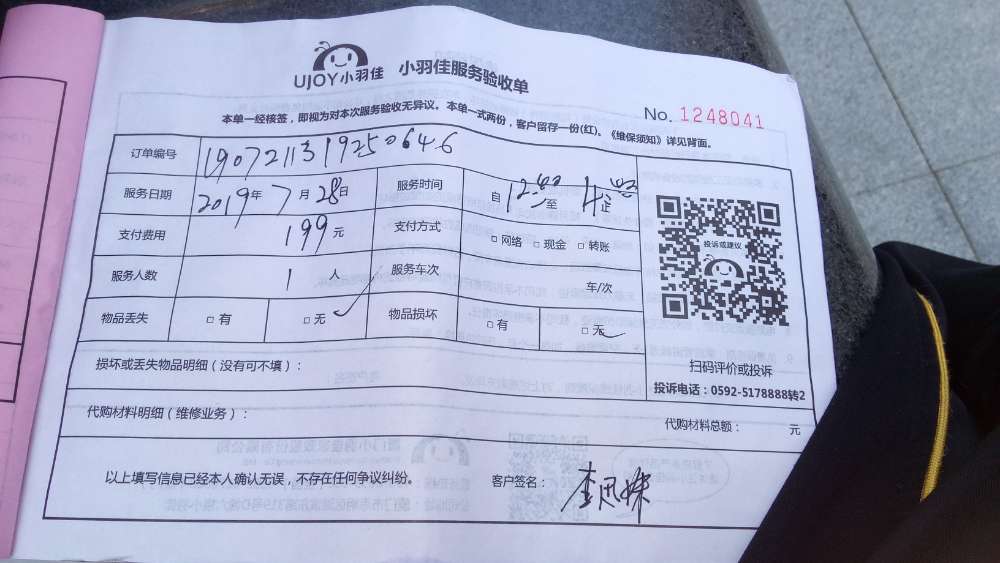 UJOY小羽佳 小羽佳服务验收单
No. 1248041
本单一经核签，即视为对本次服务验收无异议。本单一式两份，客户留存一份(红)。《维保须知》详见背面。
订单编号 1907211319250646
服务日期 2019年 7月 28日 服务时间 自 12 至 4 止
支付费用 199元 支付方式 □ 网络 □ 现金 □ 转账
服务人数 1 人 服务车次 车/次
物品丢失 □ 有 □ 无 ✓ 物品损坏 □ 有 □ 无 ✓
投诉或建议
扫码评价或投诉
投诉电话：0592-5178888转2
损坏或丢失物品明细（没有可不填）：
代购材料明细（维修业务）： 代购材料总额： 元
以上填写信息已经本人确认无误，不存在任何争议纠纷。 客户签名：